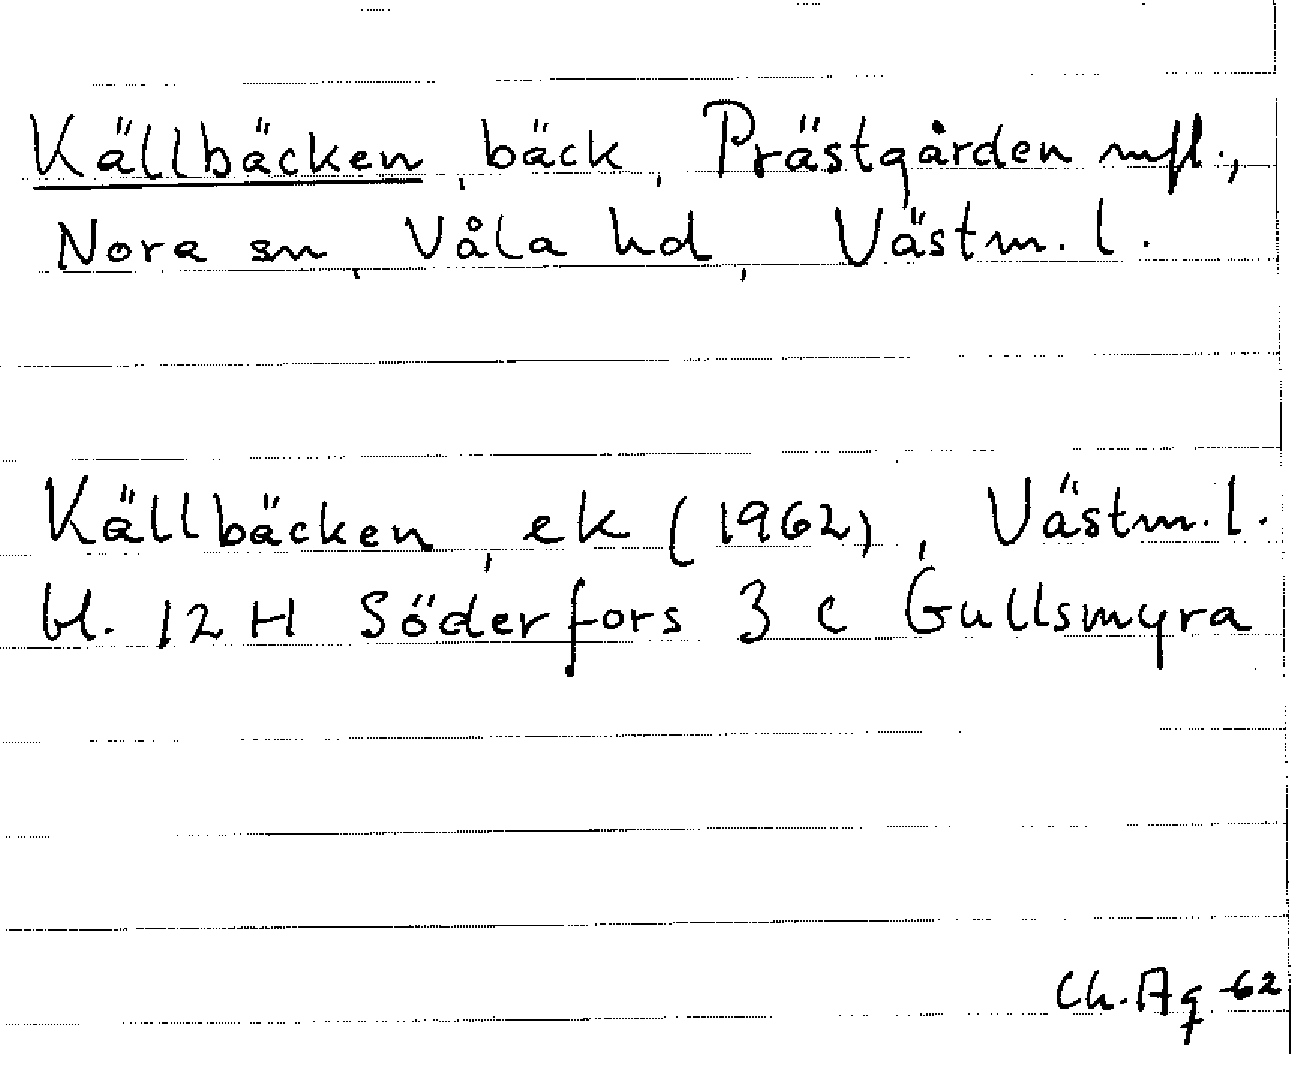 Källbäcken, bäck, Prästgården mfl.,
Nora sn, Våla hd, Västm. l.
Källbäcken, ek (1962), Västm. l.
bl. 12 H Söderfors 3 c Gullsmyra
Ch. Aq -62